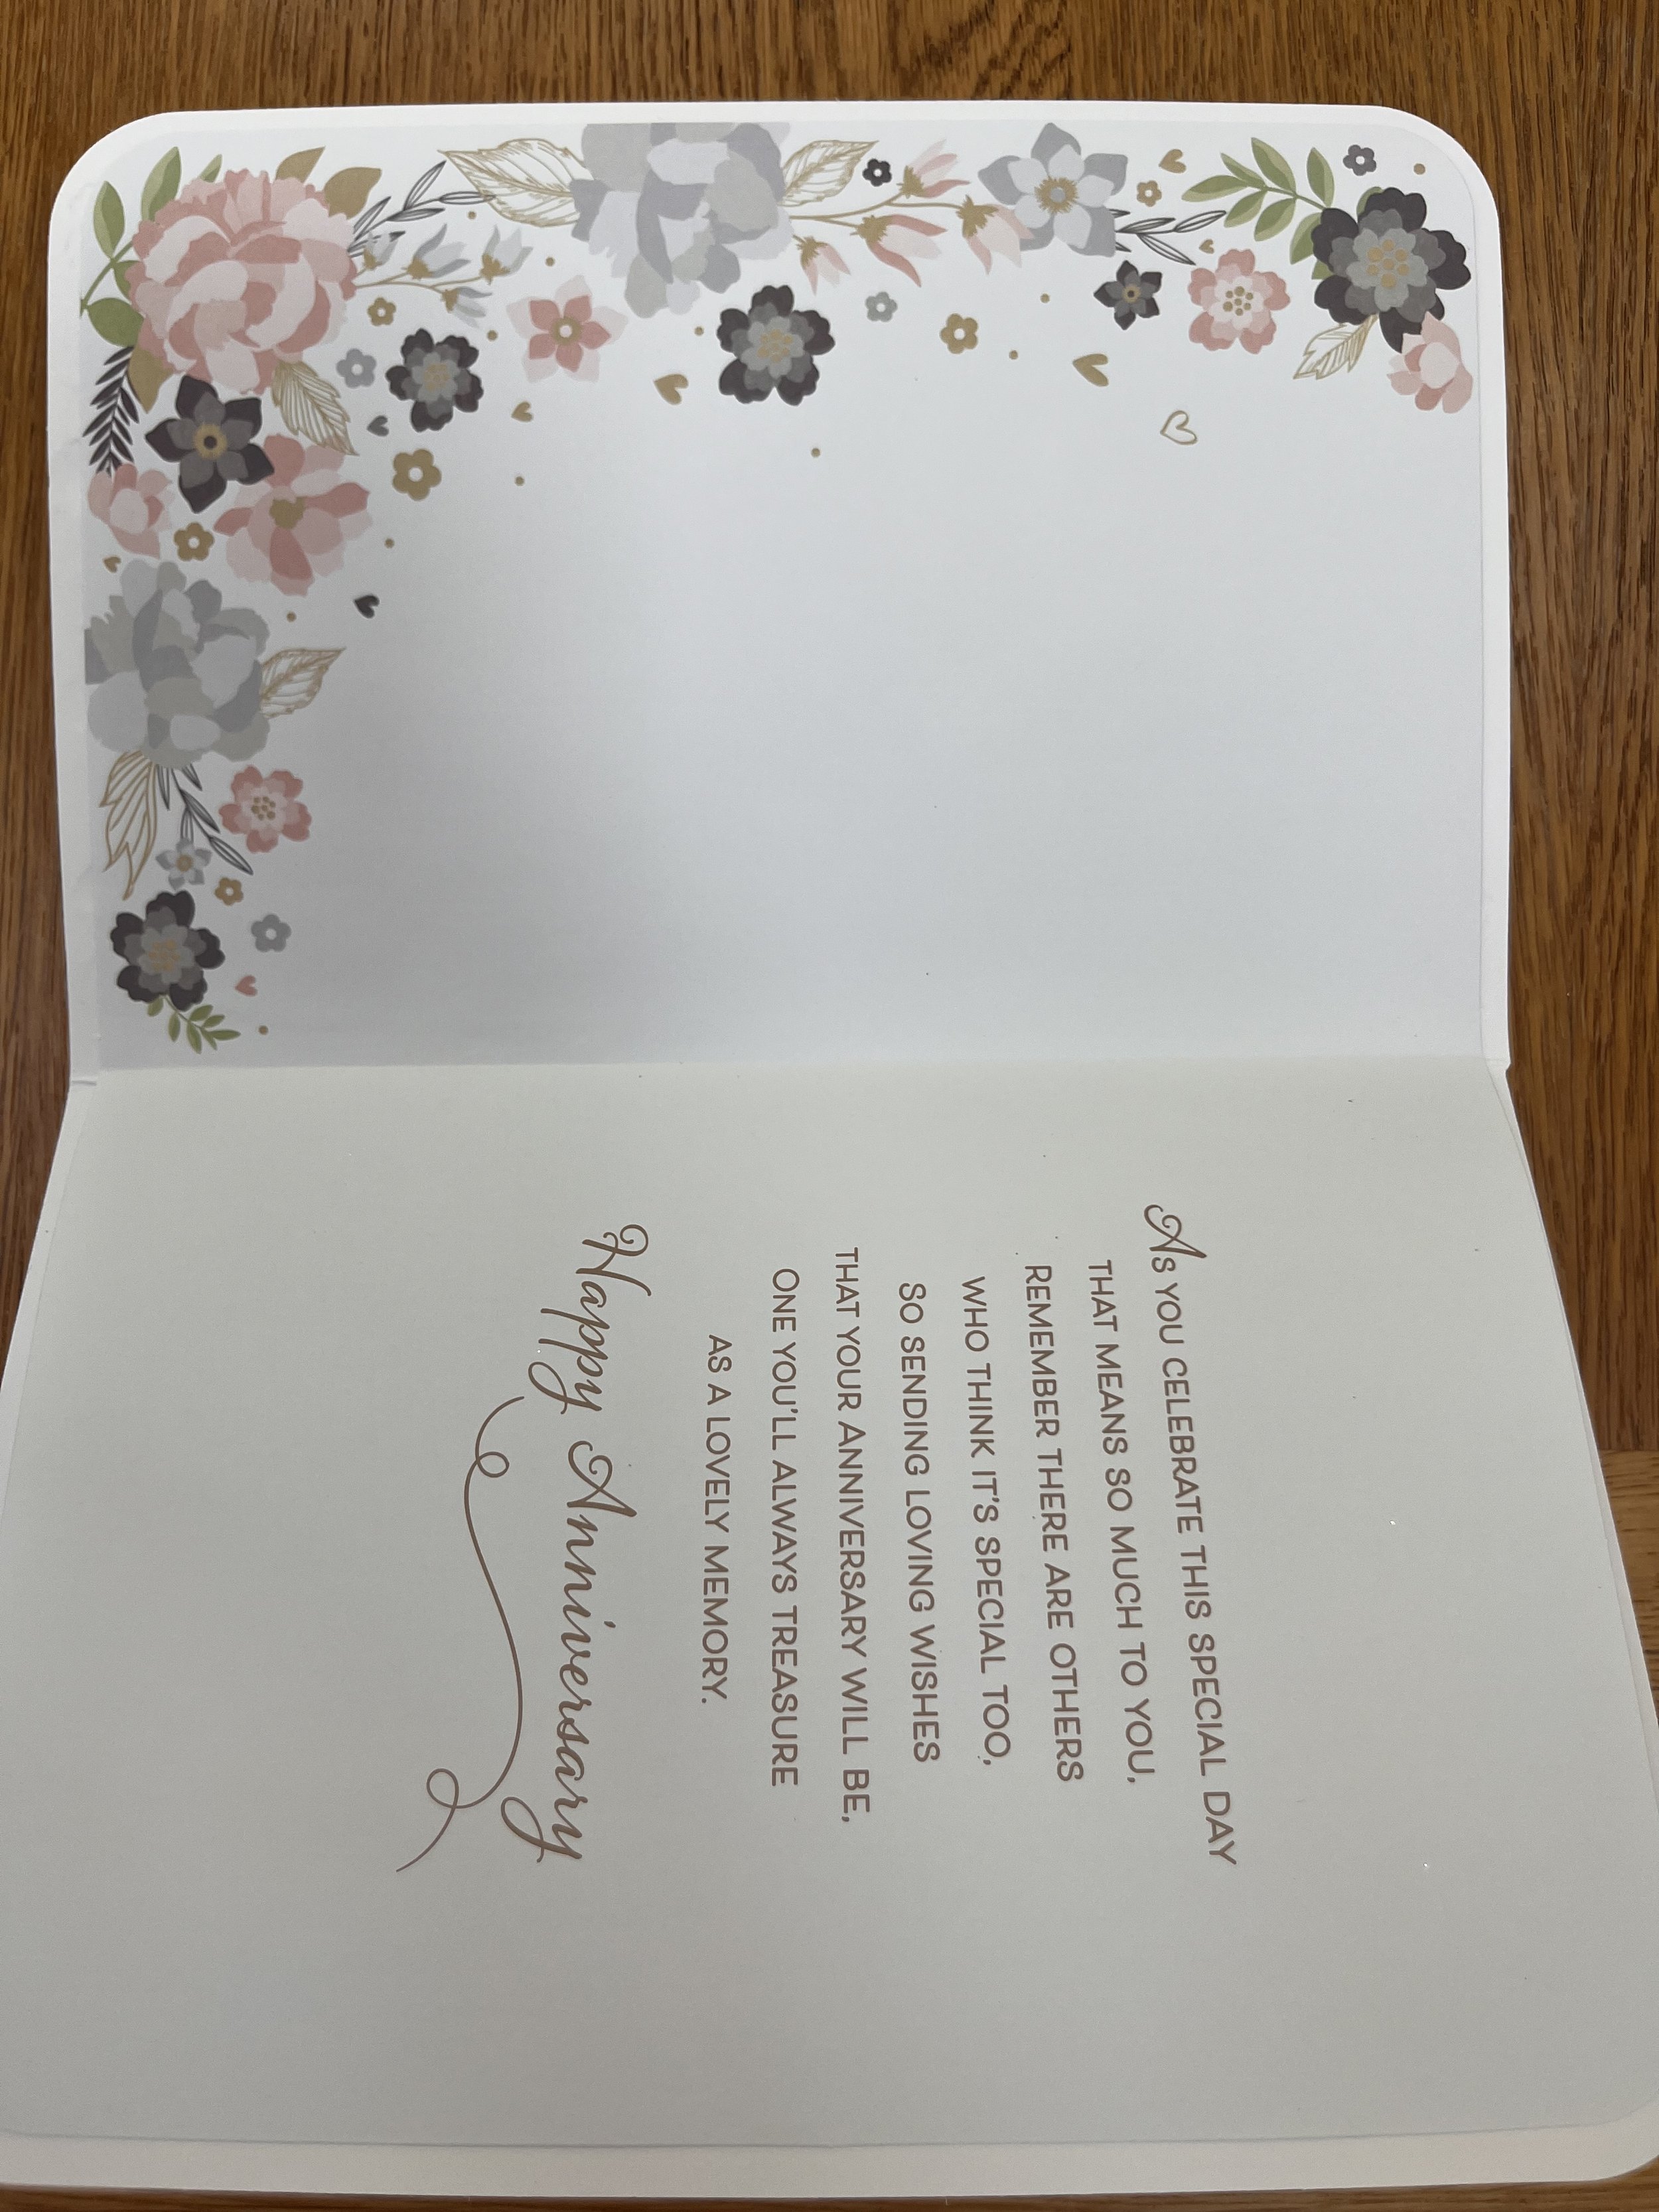 As YOU CELEBRATE THIS SPECIAL DAY
THAT MEANS SO MUCH TO YOU,
REMEMBER THERE ARE OTHERS
WHO THINK IT'S SPECIAL TOO,
SO SENDING LOVING WISHES
THAT YOUR ANNIVERSARY WILL BE,
ONE YOU'LL ALWAYS TREASURE
AS A LOVELY MEMORY.
Happy Anniversary